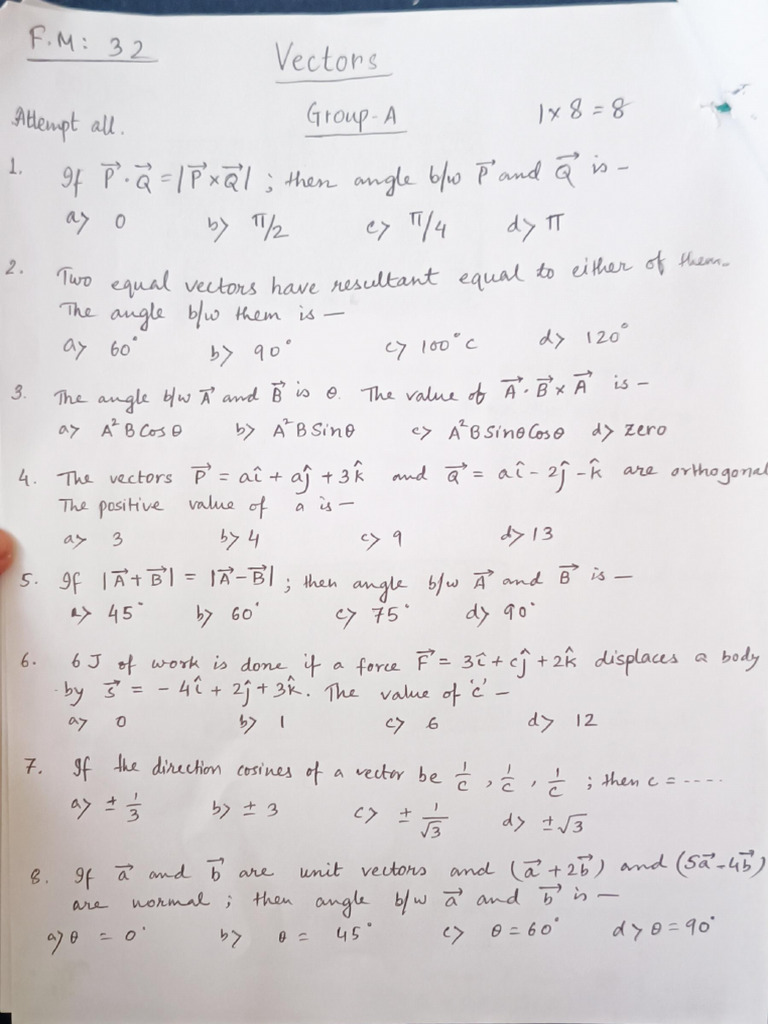 F.M: 32
Vectors
Attempt all. Group-A 1×8=8
1. If P⃗·Q⃗ = |P⃗×Q⃗| ; then angle b/w P⃗ and Q⃗ is –
a> 0 b> π/2 c> π/4 d> π
2. Two equal vectors have resultant equal to either of them.
The angle b/w them is –
a> 60° b> 90° c> 100°C d> 120°
3. The angle b/w A⃗ and B⃗ is θ. The value of A⃗·B⃗×A⃗ is –
a> A²BCosθ b> A²BSinθ c> A²BSinθCosθ d> zero
4. The vectors P⃗ = aî + aĵ + 3k̂ and Q⃗ = aî - 2ĵ - k̂ are orthogonal
The positive value of a is –
a> 3 b> 4 c> 9 d> 13
5. If |A⃗+B⃗| = |A⃗-B⃗| ; then angle b/w A⃗ and B⃗ is –
a> 45° b> 60° c> 75° d> 90°
6. 6 J of work is done if a force F⃗ = 3î + cĵ + 2k̂ displaces a body
by s⃗ = -4î + 2ĵ + 3k̂. The value of 'c' –
a> 0 b> 1 c> 6 d> 12
7. If the direction cosines of a vector be 1/c , 1/c , 1/c ; then c = ----
a> ± 1/3 b> ± 3 c> ± 1/√3 d> ±√3
8. If a⃗ and b⃗ are unit vectors and (a⃗ + 2b⃗) and (5a⃗ - 4b⃗)
are normal ; then angle b/w a⃗ and b⃗ is –
a> θ = 0° b> θ = 45° c> θ = 60° d> θ = 90°